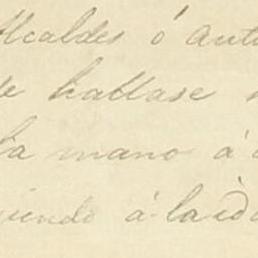 Alcaldes ó auto
hallase
la mano á
iendo á la ido